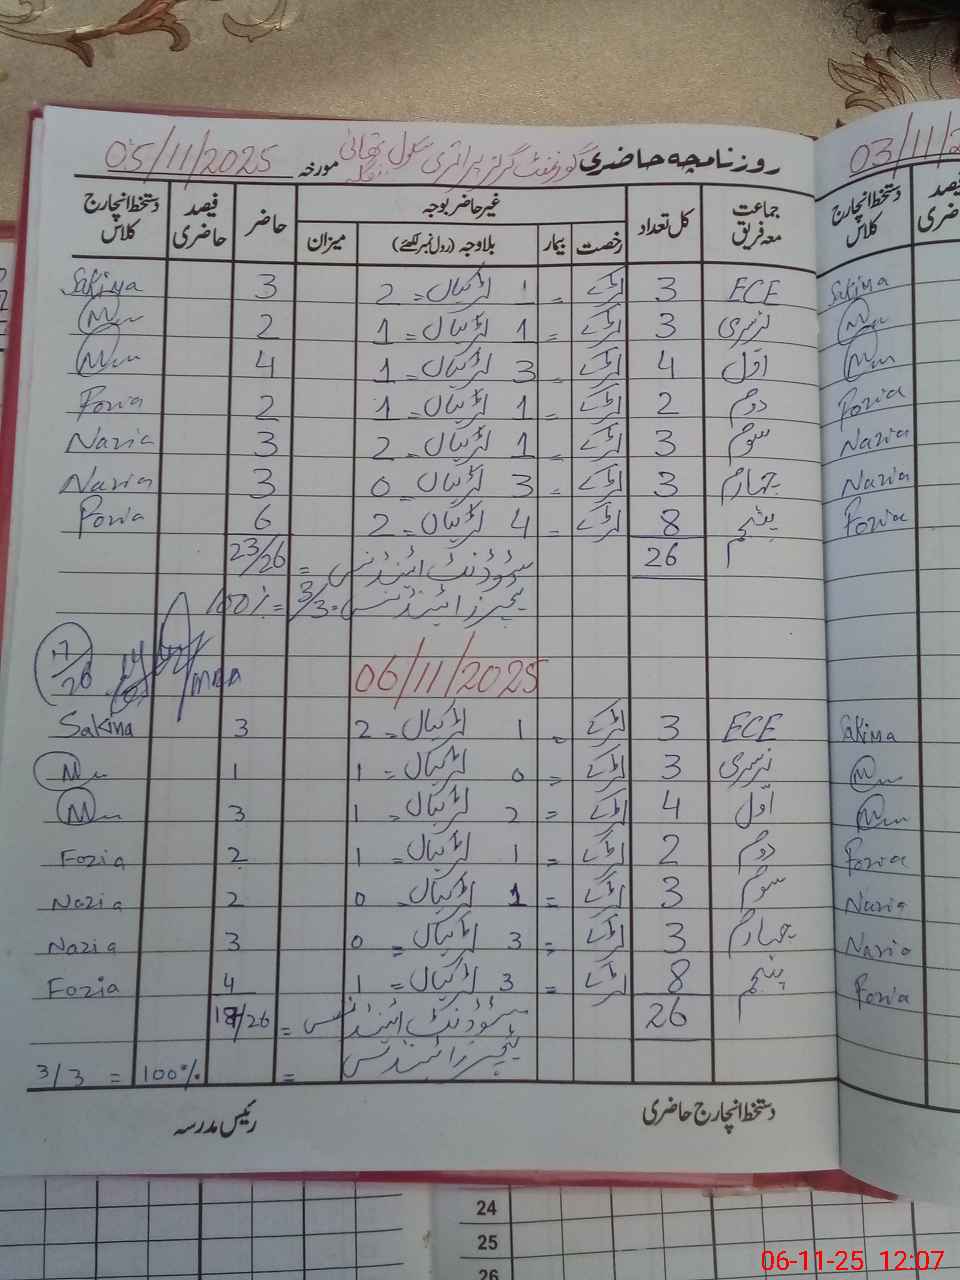 روزنامچہ حاضری گورنمنٹ گرلز پرائمری سکول مورخہ 05/11/2025
جماعت معہ فریق کل تعداد غیر حاضر بوجہ حاضر فیصد حاضری دستخط انچارج کلاس
رخصت بیمار بلاوجہ (رول نمبر لکھئے) میزان
ECE 3 لڑکے = 1 لڑکیاں = 2 3 Sakina
نرسری 3 لڑکے = 1 لڑکیاں = 1 2
اوّل 4 لڑکے = 3 لڑکیاں = 1 4
دوم 2 لڑکے = 1 لڑکیاں = 1 2 Fozia
سوم 3 لڑکے = 1 لڑکیاں = 2 3 Nazia
چہارم 3 لڑکے = 3 لڑکیاں = 0 3 Nazia
پنجم 8 لڑکے = 4 لڑکیاں = 2 6 Fozia
26 سٹوڈنٹ اٹینڈنس = 23/26
ٹیچرز اٹینڈنس = 3/3 = 100%
17/26
06/11/2025
ECE 3 لڑکے = 1 لڑکیاں = 2 3 Sakina
نرسری 3 لڑکے = 0 لڑکیاں = 1 1
اوّل 4 لڑکے = 2 لڑکیاں = 1 3
دوم 2 لڑکے = 1 لڑکیاں = 1 2 Fozia
سوم 3 لڑکے = 1 لڑکیاں = 0 2 Nazia
چہارم 3 لڑکے = 3 لڑکیاں = 0 3 Nazia
پنجم 8 لڑکے = 3 لڑکیاں = 1 4 Fozia
26 سٹوڈنٹ اٹینڈنس = 18/26
ٹیچرز اٹینڈنس = 100% = 3/3
دستخط انچارج حاضری رئیس مدرسہ
03/11/2
دستخط انچارج کلاس
Sakina
Fozia
Nazia
Nazia
Fozia
Sakina
Fozia
Nazia
Nazia
Fozia
24
25
26
06-11-25 12:07